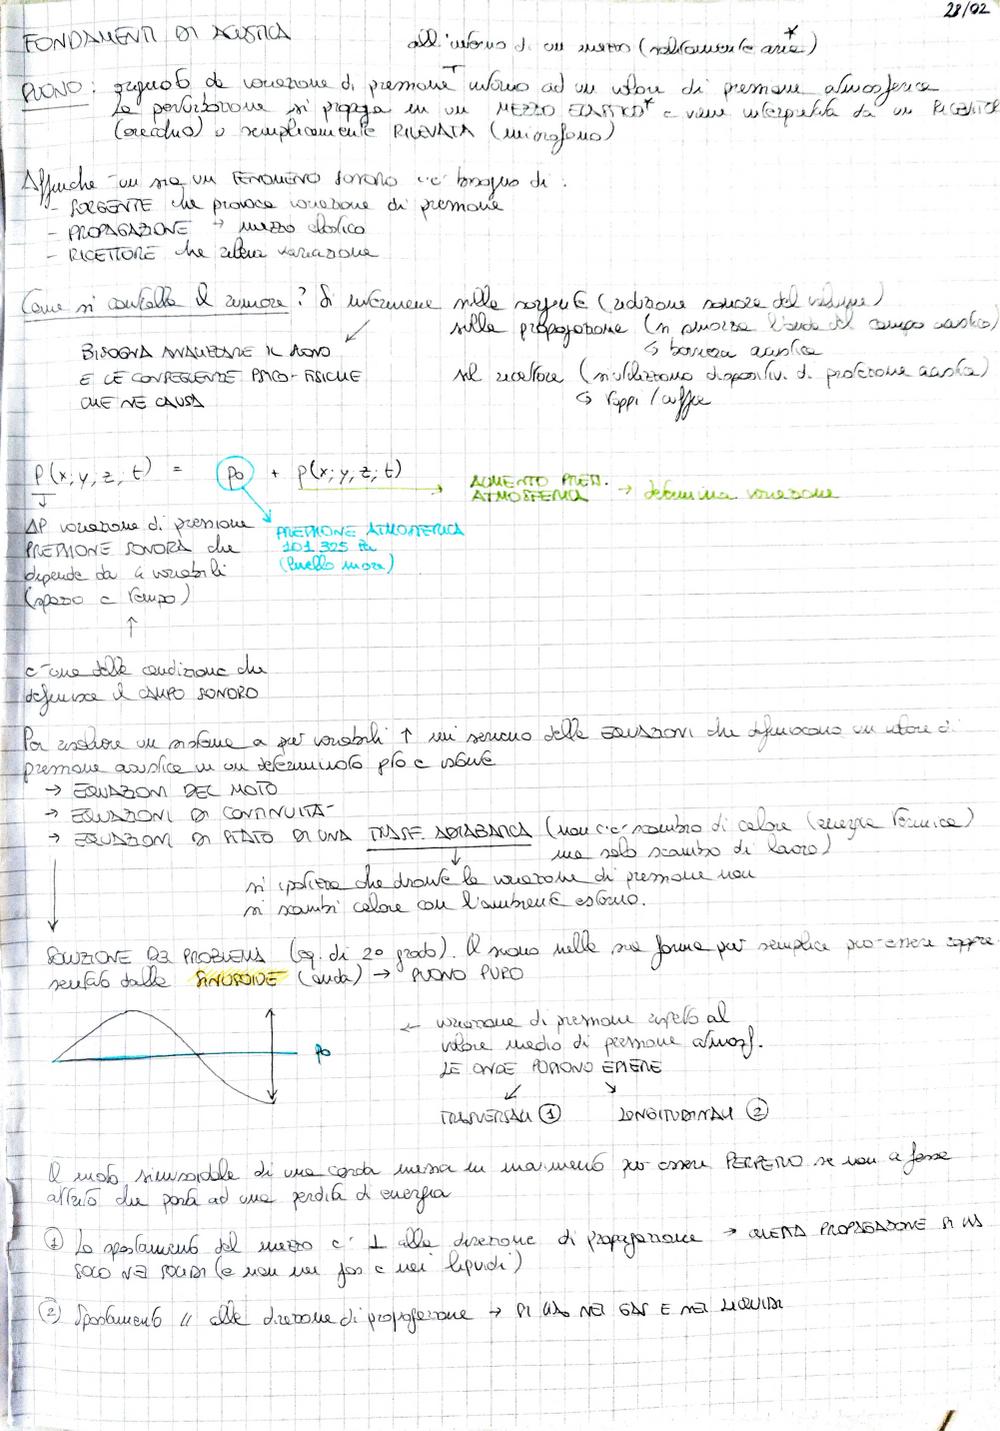 28/02
FONDAMENTI DI ACUSTICA
all'interno di un mezzo (solitamente aria*)
SUONO: segnale da variazione di pressione intorno ad un valore di pressione atmosferica
La perturbazione si propaga in un MEZZO ELASTICO* e viene interpretata da un RICETTORE
(orecchio) o semplicemente RILEVATA (microfono)
Affinché vi sia un FENOMENO SONORO c'è bisogno di:
- SORGENTE che provoca variazione di pressione
- PROPAGAZIONE → mezzo elastico
- RICETTORE che rileva variazione
Come si controlla il rumore? Si interviene sulla sorgente (riduzione sonora del volume)
sulla propagazione (si smorza l'onda del campo acustico)
↳ barriera acustica
sul ricettore (si utilizzano dispositivi di protezione acustica)
↳ tappi / cuffie
BISOGNA ANALIZZARE IL SUONO
E LE CONSEGUENZE PSICO-FISICHE
CHE NE CAUSA
P(x; y; z; t) = p0 + p(x; y; z; t)
AUMENTO PRESS.
ATMOSFERICA → determina variazione
ΔP variazione di pressione
PRESSIONE SONORA che
dipende da 4 variabili
(spazio e tempo)
PRESSIONE ATMOSFERICA
101 325 Pa
(livello mare)
↑
è una delle condizione che
definisce il CAMPO SONORO
Per risolvere un sistema a più variabili ↑ mi servono delle EQUAZIONI che definiscono un valore di
pressione acustica in un determinato pto e istante
→ EQUAZIONI DEL MOTO
→ EQUAZIONI DI CONTINUITÀ
→ EQUAZIONI DI STATO DI UNA TRASF. ADIABATICA (non c'è scambio di calore (energia termica)
ma solo scambio di lavoro)
si ipotizza che durante la variazione di pressione non
si scambi calore con l'ambiente esterno.
SOLUZIONE DEL PROBLEMA (eq. di 2° grado). Il suono nella sua forma più semplice può essere rappre-
sentato dalla SINUSOIDE (onda) → SUONO PURO
p0
← variazione di pressione rispetto al
valore medio di pressione atmosf.
LE ONDE POSSONO ESSERE
TRASVERSALI ① LONGITUDINALI ②
Il moto sinusoidale di una corda messa in movimento può essere PERPETUO se non ci fosse
attrito che porta ad una perdita di energia
① Lo spostamento del mezzo è ⊥ alla direzione di propagazione → QUESTA PROPAGAZIONE SI HA
SOLO NEI SOLIDI (e non nei gas e nei liquidi)
② Spostamento // alla direzione di propagazione → SI HA NEI GAS E NEI LIQUIDI